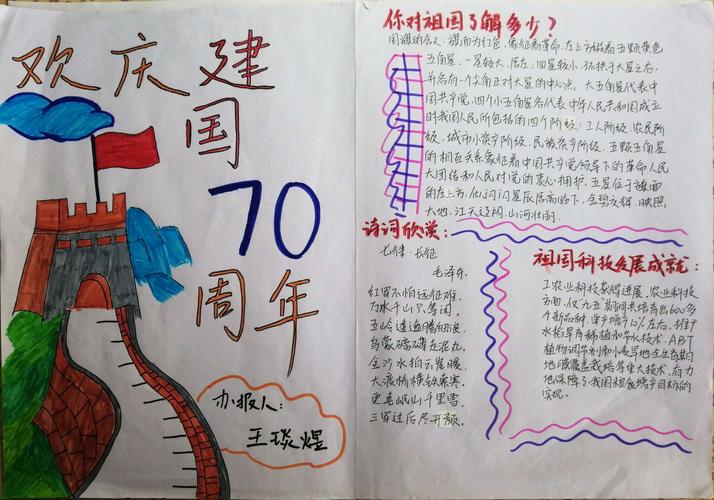 欢庆建
国
70
周年
办报人:
王琰煜
你对祖国了解多少?
国旗的含义:旗面为红色,象征着革命,左上方缀着五颗黄色
五角星,一星较大,居左,四星较小,环拱于大星之右,
并各有一个尖角正对大星的中心点,大五角星代表中
国共产党,四个小五角星各代表中华人民共和国成立
时我国人民所包括的四个阶级:工人阶级、农民阶
级、城市小资产阶级、民族资产阶级,五颗五角星
的相互关系象征着中国共产党领导下的革命人民
大团结和人民对党的衷心拥护,五星位于旗面
的左上方,似闪闪星辰居高临下,金碧交辉,映照
大地,江天辽阔,山河壮丽
诗词欣赏:
七律·长征
毛泽东
红军不怕远征难,
万水千山只等闲。
五岭逶迤腾细浪,
乌蒙磅礴走泥丸。
金沙水拍云崖暖,
大渡桥横铁索寒。
更喜岷山千里雪,
三军过后尽开颜。
祖国科技发展成就:
1.农业科技蒙勃进展,农业科技
方面,仅九五期间共培育出600多
个新品种,单产增产12%左右,推广
水稻旱育稀植和节水技术,ABT
植物调节剂和小麦旱地全生育期
地膜覆盖栽培等重大技术,有力
地保障了我国粮食增产目标的
实现。